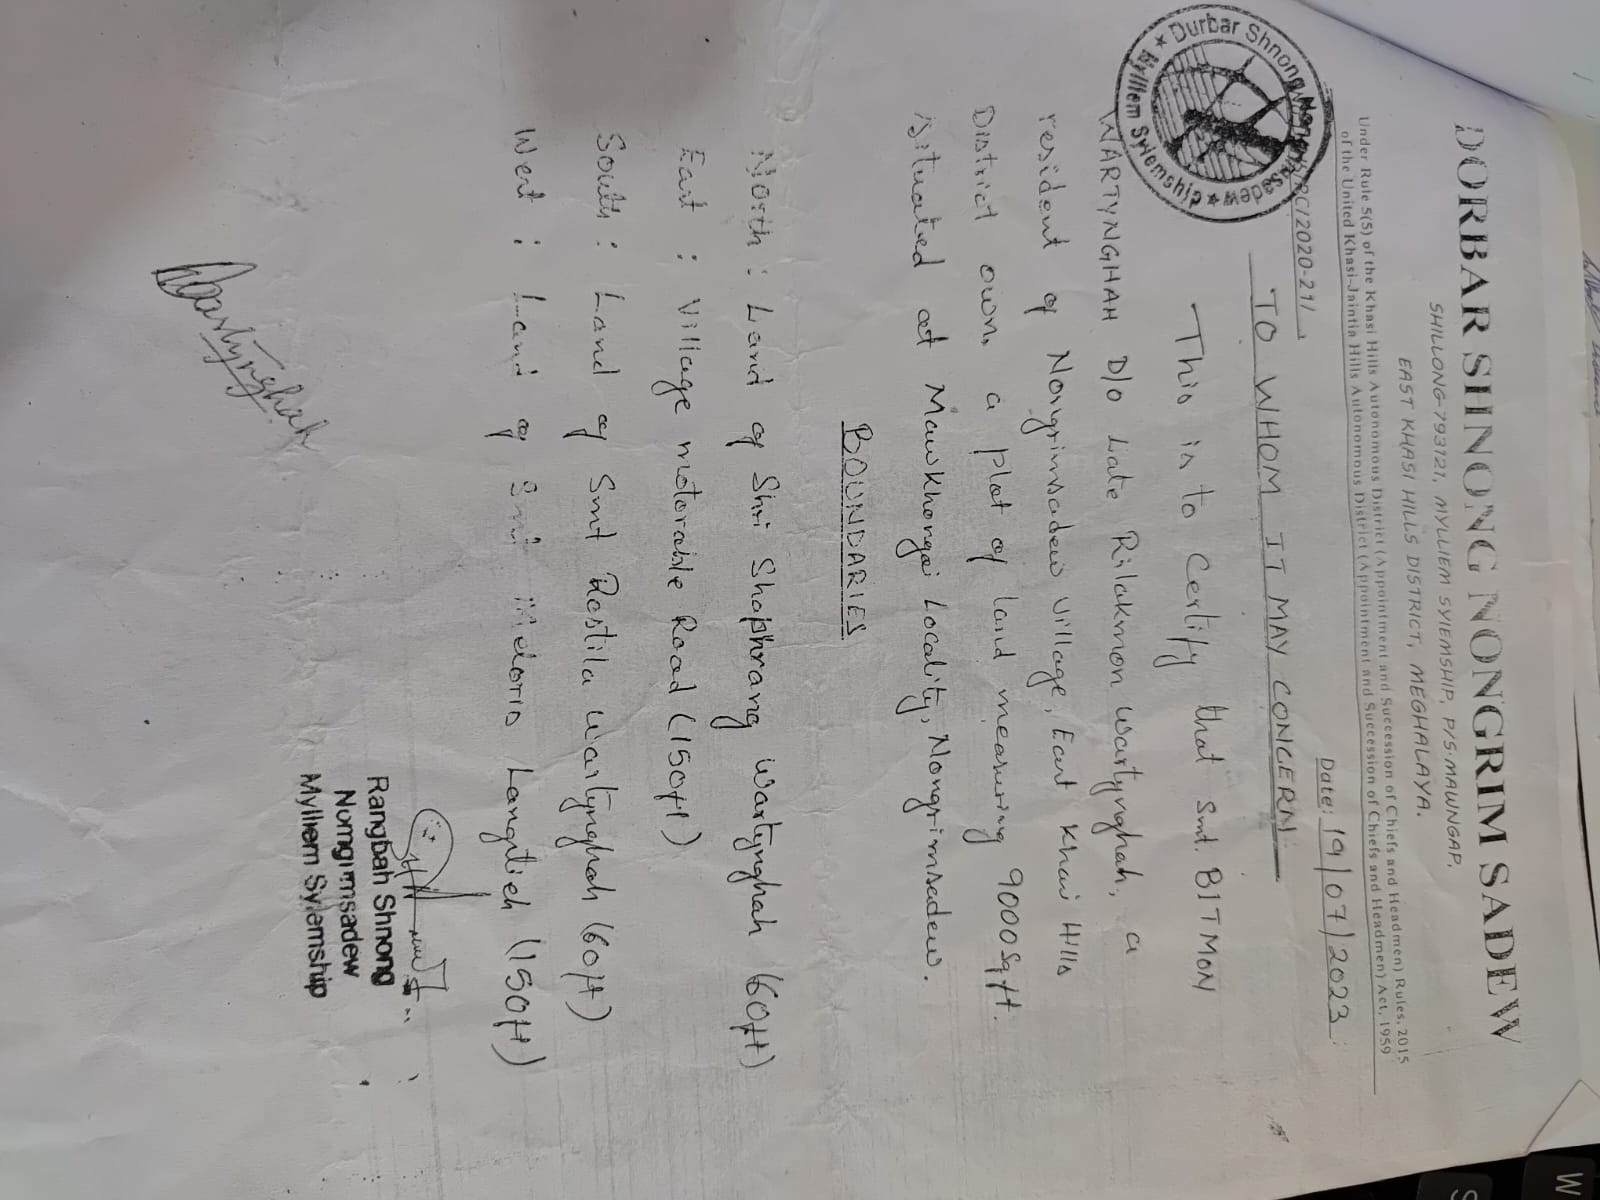 DORBAR SHNONG NONGRIM SADEW
SHILLONG-793121, MYLLIEM SYIEMSHIP, P/S-MAWNGAP,
EAST KHASI HILLS DISTRICT, MEGHALAYA.
Under Rule 5(5) of the Khasi Hills Autonomous District (Appointment and Succession of Chiefs and Headmen) Rules, 2015
of the United Khasi-Jaintia Hills Autonomous District (Appointment and Succession of Chiefs and Headmen) Act, 1959
RC/2020-21/
Date: 19/07/2023
Durbar Shnong Nongrimsadew
Mylliem Syiemship
TO WHOM IT MAY CONCERN
This is to Certify that Smt. BITMON
WARTYNGHAH D/o Late Rilakmon Wartynghah, a
resident of Nongrimsadew village, East Khai Hills
District own a plot of land measuring 9000 Sq ft.
situated at Mawkhongai Locality, Nongrimsadew.
BOUNDARIES
North : Land of Shri Shaphrang Wartynghah (60ft)
East : Village motorable Road (150ft)
South : Land of Smt Restila Wartynghah (60ft)
West : Land of Smt Langtieh (150ft)
Rangbah Shnong
Nomgrimsadew
Mylliem Syiemship
Wartynghah
W
S